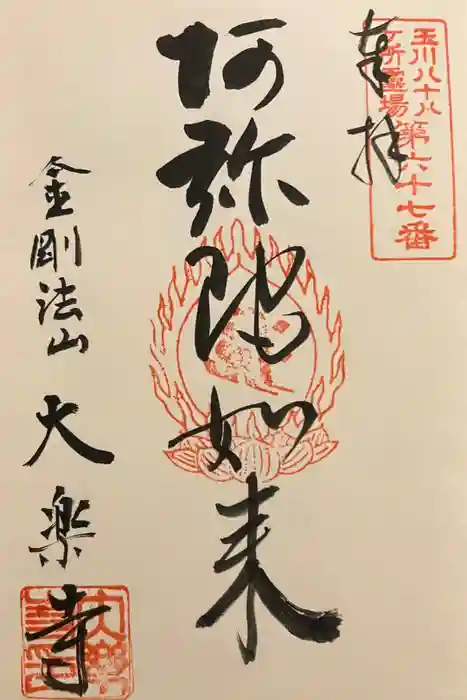 奉拝
玉川八十八
ヶ所霊場第六十七番
阿弥陀如来
金剛法山
大楽寺